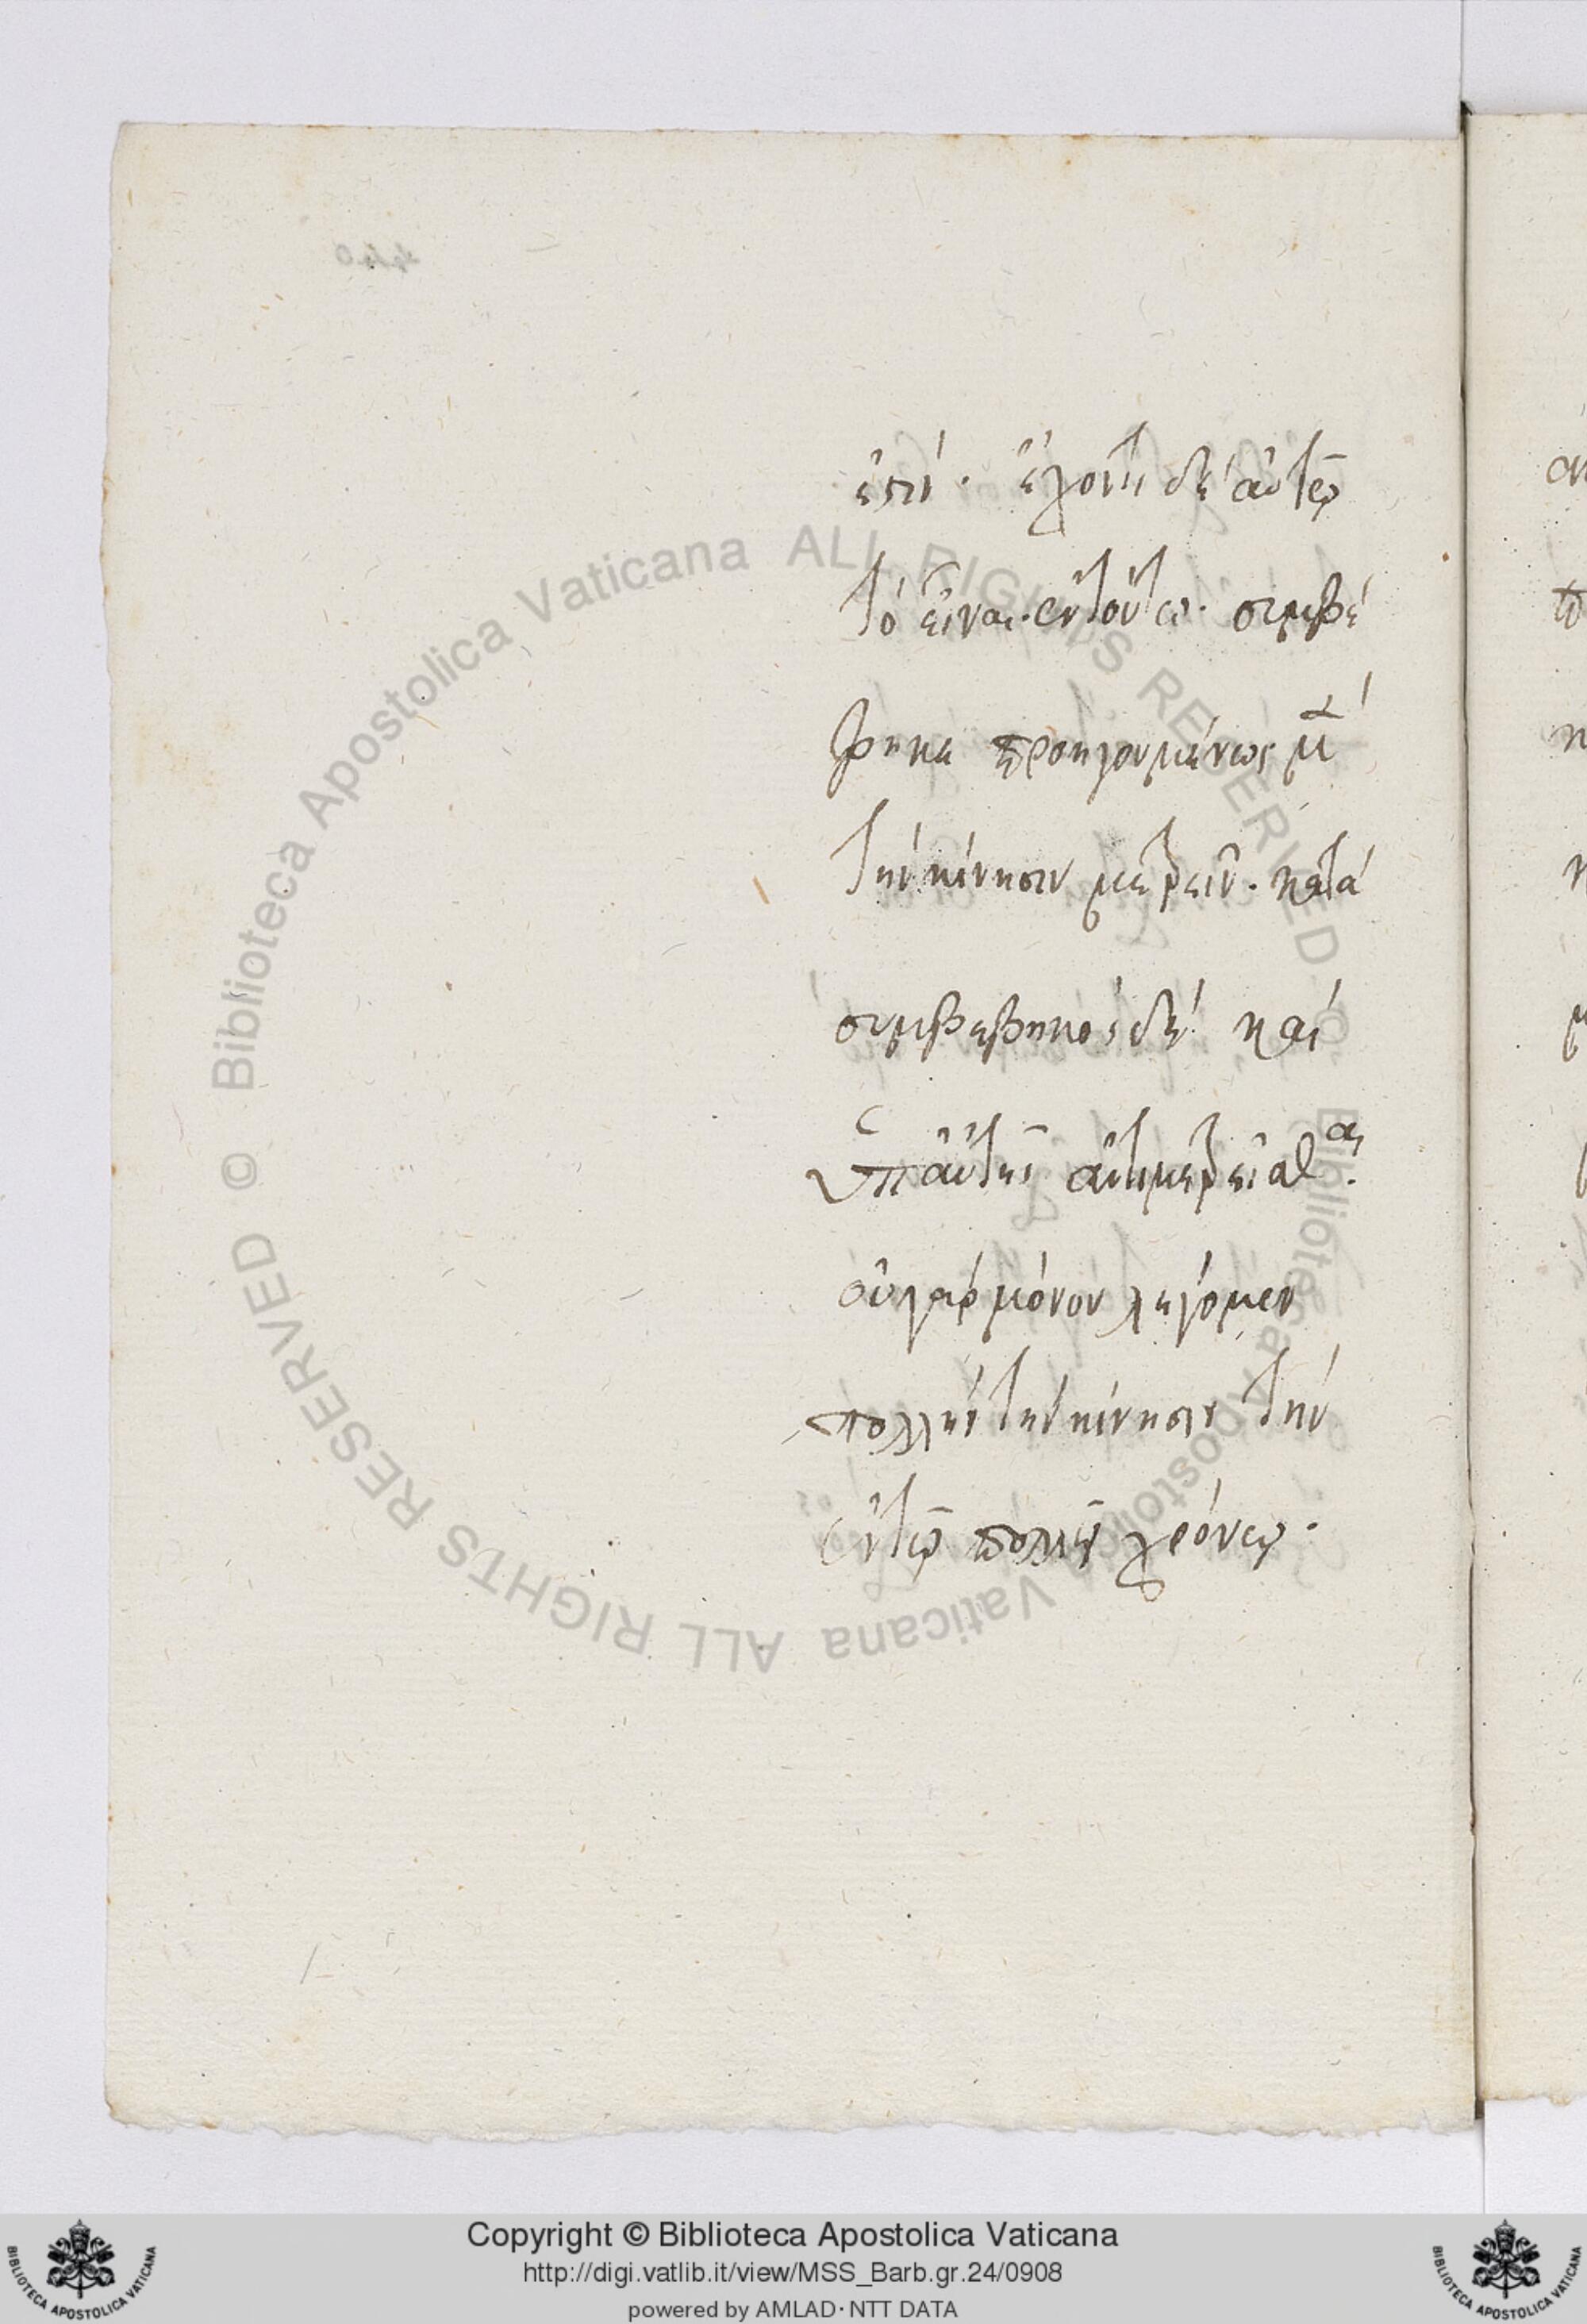 ἐστί. ἔχοντι δὲ αὐτῷ
τὸ εἶναι. ἐν τούτω. συμβέ
βηκε προηγουμένως μὲν
τὴν κίνησιν μετρεῖν. κατὰ
συμβεβηκὸς δὲ καὶ
ὑπ αὐτῆς ἀντιμετρεῖσθαι.
οὐ γὰρ μόνον λέγομεν
πολλὴν τὴν κίνησιν τὴν
ἐν τῷ πολλῷ χρόνῳ.
Biblioteca Apostolica Vaticana ALL RIGHTS RESERVED ©
Biblioteca Apostolica Vaticana ALL RIGHTS RESERVED ©
Copyright © Biblioteca Apostolica Vaticana
http://digi.vatlib.it/view/MSS_Barb.gr.24/0908
powered by AMLAD·NTT DATA
BIBLIOTECA APOSTOLICA VATICANA
BIBLIOTECA APOSTOLICA VATICANA